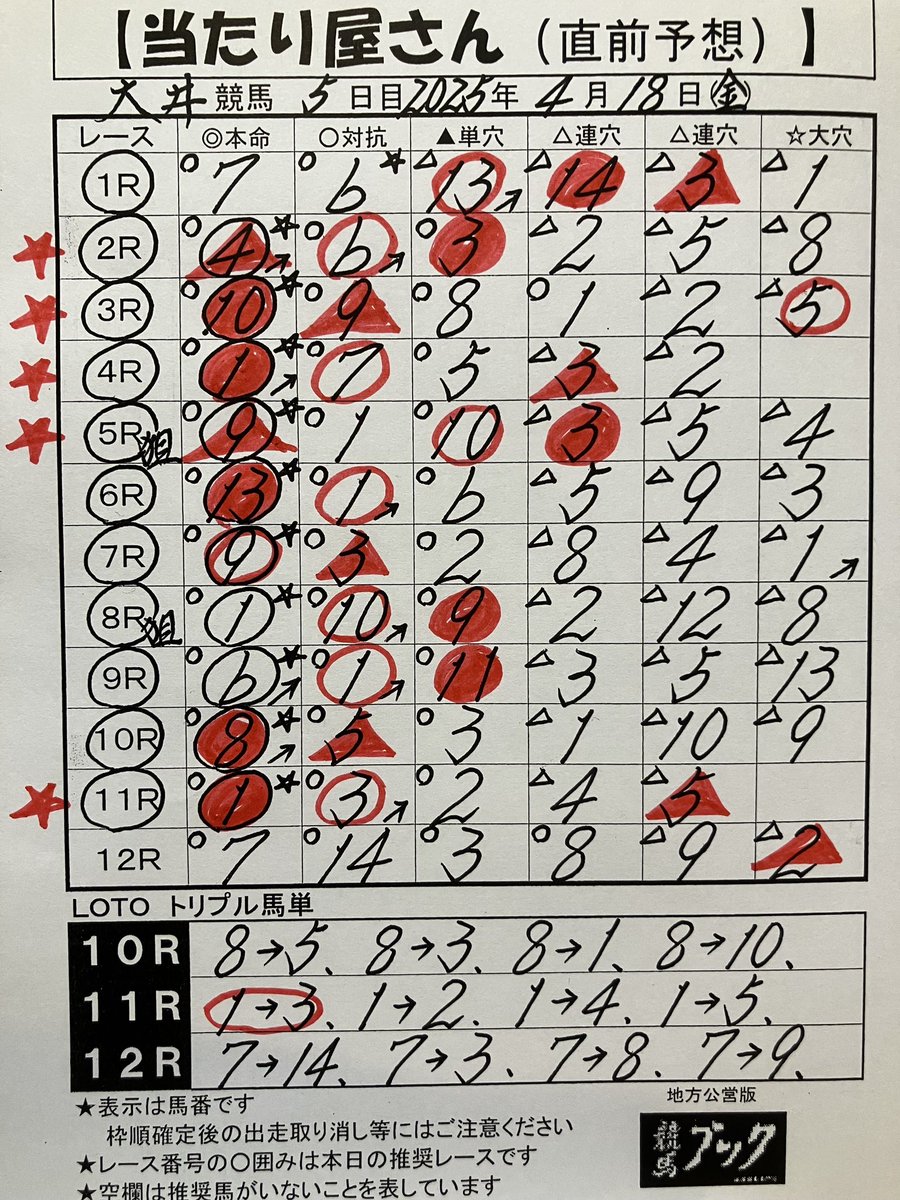 【当たり屋さん（直前予想）】
大井 競馬 5 日目 2025年 4 月 18 日 ㊎
レース ◎本命 ○対抗 ▲単穴 △連穴 △連穴 ☆大穴
1R ○7 ○6☆ △13↗ △14 △3 △1
2R ○4☆↗ ○6↗ ○3 △2 △5 △8
3R ○10☆ ○9 ○8 ○1 △2 △5
4R ○1☆↗ ○7 ○5 △3 △2
5R狙 ○9☆ ○1 ○10 △3 △5 △4
6R ○13☆ ○1↗ ○6 △5 △9 △3
7R ○9☆ ○3 ○2 △8 △4 △1↗
8R狙 ○1☆ ○10↗ ○9 △2 △12 △8
9R ○6☆↗ ○1↗ ○11 △3 △5 △13
10R ○8☆↗ ○5 ○3 △1 △10 △9
11R ○1☆ ○3↗ ○2 △4 △5
12R ○7 ○14 ○3 ○8 △9 △2
LOTO トリプル馬単
10R 8→5、8→3、8→1、8→10、
11R 1→3、1→2、1→4、1→5、
12R 7→14、7→3、7→8、7→9、
★表示は馬番です
枠順確定後の出走取り消し等にはご注意ください
★レース番号の〇囲みは本日の推奨レースです
★空欄は推奨馬がいないことを表しています
地方公営版
競馬ブック